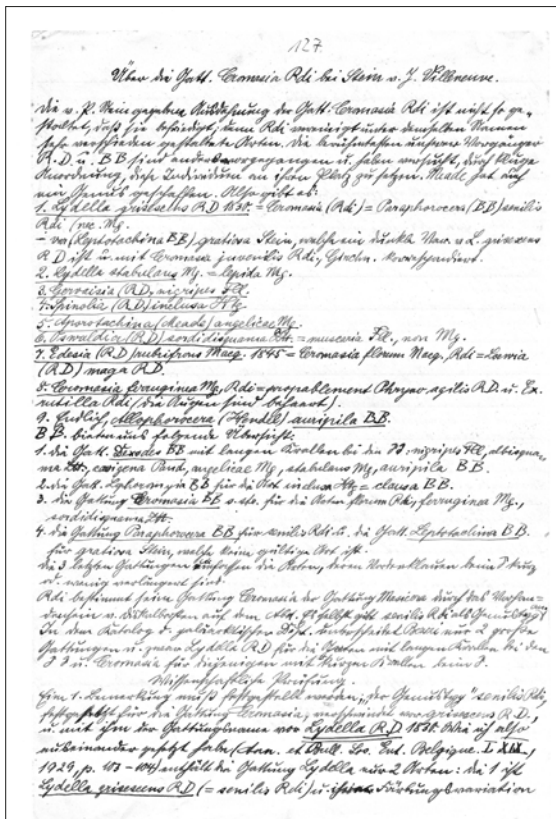 127.
Über die Gatt. Ceromasia Rdi bei Stein v. J. Villeneuve.
Die v. P. Stein gegebene Ausdehnung der Gatt. Ceromasia Rdi ist nicht so ge-
staltet, daß sie befriedigt; denn Rdi vereinigt unter demselben Namen
sehr verschieden gestaltete Arten. Die berühmtesten unserer Vorgänger
R.D. u. BB sind anders vorgegangen u. haben versucht, durch kluge
Anordnung, diese Individuen an ihren Platz zu setzen. Meade hat auch
ein Genus geschaffen. Also gibt es:
1. Lydella grisescens R.D 1830. = Ceromasia (Rdi) = Paraphorocera (BB) senilis
Rdi (nec. Mg.
- var (Leptotachina BB) gratiosa Stein, welche ein dunkle Var. v. L. grisescens
R D ist u. mit Ceromasia juvenilis Rdi, Girschn. korrespondiert.
2. Lydella stabulans Mg. = lepida Mg.
3. Gervaisia (R.D, nigripes Fll.
4. Spinolia (R.D) inclusa Htg.
5. Aporotachina (Meade) angelicae Mg.
6. Oswaldia (R.D) sordidisquama Ztt. = muscaria Fll., non Mg.
7. Edesia (R.D) rubrifrons Macq. 1845 = Ceromasia florum Macq., Rdi = Zenmia
(R.D) maga R.D.
8. Ceromasia ferruginea Mg, Rdi = propablement Phryxe agilis R.D. u. Ex
mutilla Rdi (die Augen sind behaart).
9. Endlich, Allophorocera (Hendel) auripila BB.
BB. bieten uns folgende Übersicht:
1. die Gatt. Dexodes BB mit langen Krallen bei den ♂♂: nigripes Fll, albisqua-
ma Ztt., cavigena Pand, angelicae Mg, stabulans Mg, auripila BB.
2. die Gatt. Lophoromyia BB für die Art inclusa Htg = clausa BB.
3. die Gattung Ceromasia BB s. str. für die Arten florum Rdi, ferruginea Mg.,
sordidisquama Ztt.
4. die Gattung Paraphorocera BB für senilis Rdi u. die Gatt. Leptotachina BB.
für gratiosa Stein, welche keine gültige Art ist.
die 3 letzten Gattungen umfassen die Arten, deren Vorderklauen beim ♂ kurz
od. wenig verlängert sind.
Rdi bestimmt seine Gattung Ceromasia der Gattung Masicera durch das Vorhan-
densein v. Diskalborsten auf dem Abd. Er selbst gibt senilis Rdi als Genustyp an
In dem Katalog d. paläarktischen Dipt. unterscheidet Bezzi nur 2 große
Gattungen u. zwar Lydella R D für die Arten mit langen Krallen bei den
♂♂ u. Ceromasia für diejenigen mit kurzen Krallen beim ♂.
Wissenschaftliche Prüfung.
Eine 1. Bemerkung muß festgestellt werden; „der Genustyp“ senilis Rdi,
festgesetzt für die Gattung Ceromasia, verschwindet vor grisescens R.D.,
u. mit ihm der Gattungsname vor Lydella R.D 1830. Wie ich also
auseinander gesetzt habe (Ann. et Bull. Soc. Ent. Belgique. LXIX.,
1929, p. 103 - 104) enthält die Gattung Lydella nur 2 Arten: die 1 ist
Lydella grisescens R.D (= senilis Rdi) u. ihre Färbungsvariation